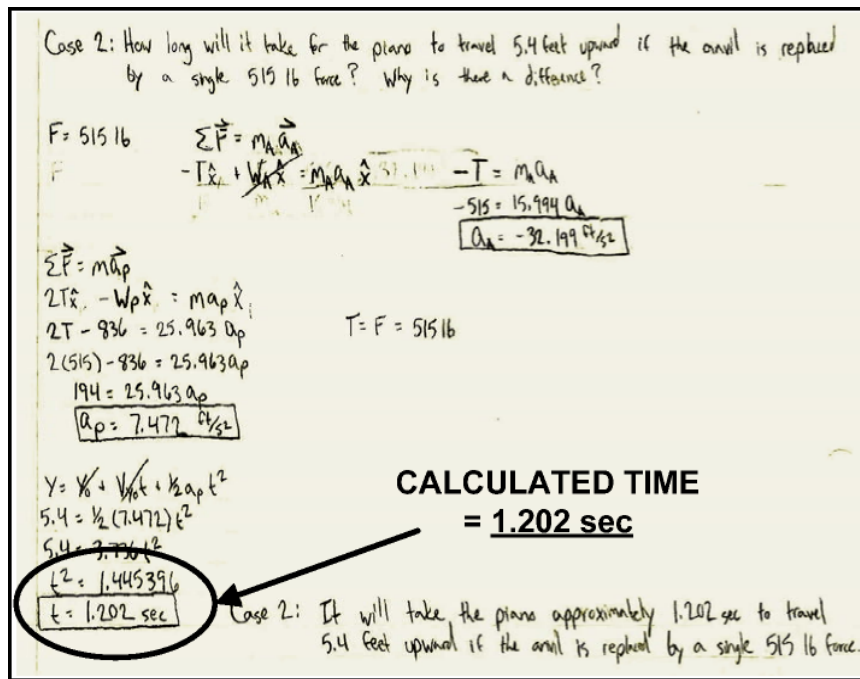 Case 2: How long will it take for the piano to travel 5.4 feet upward if the anvil is replaced
by a single 515 lb force? Why is there a difference?
F = 515 lb
ΣF⃗ = m_A a⃗_A
-Tx̂ + W_A x̂ = m_A a_A x̂
-T = m_A a_A
-515 = 15.994 a_A
a_A = -32.199 ft/s²
ΣF⃗ = ma⃗_p
2Tx̂ - W_p x̂ = ma_p x̂
2T - 836 = 25.963 a_p
T = F = 515 lb
2(515) - 836 = 25.963 a_p
194 = 25.963 a_p
a_p = 7.472 ft/s²
Y = Y₀ + V_y₀t + ½ a_p t²
5.4 = ½(7.472)t²
5.4 = 3.736 t²
t² = 1.445396
t = 1.202 sec
CALCULATED TIME
= 1.202 sec
Case 2: It will take the piano approximately 1.202 sec to travel
5.4 feet upward if the anvil is replaced by a single 515 lb force.